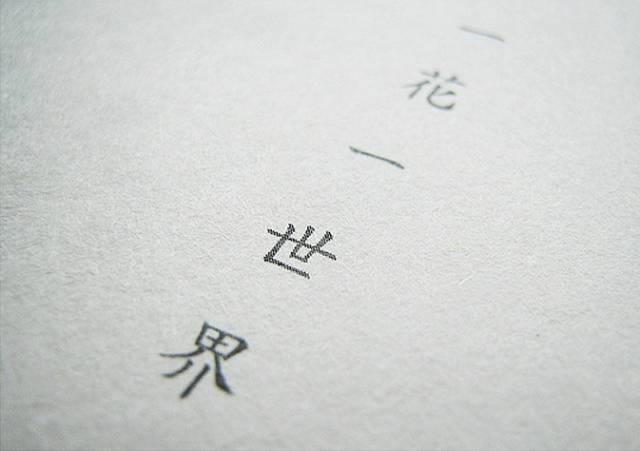 一花一世界